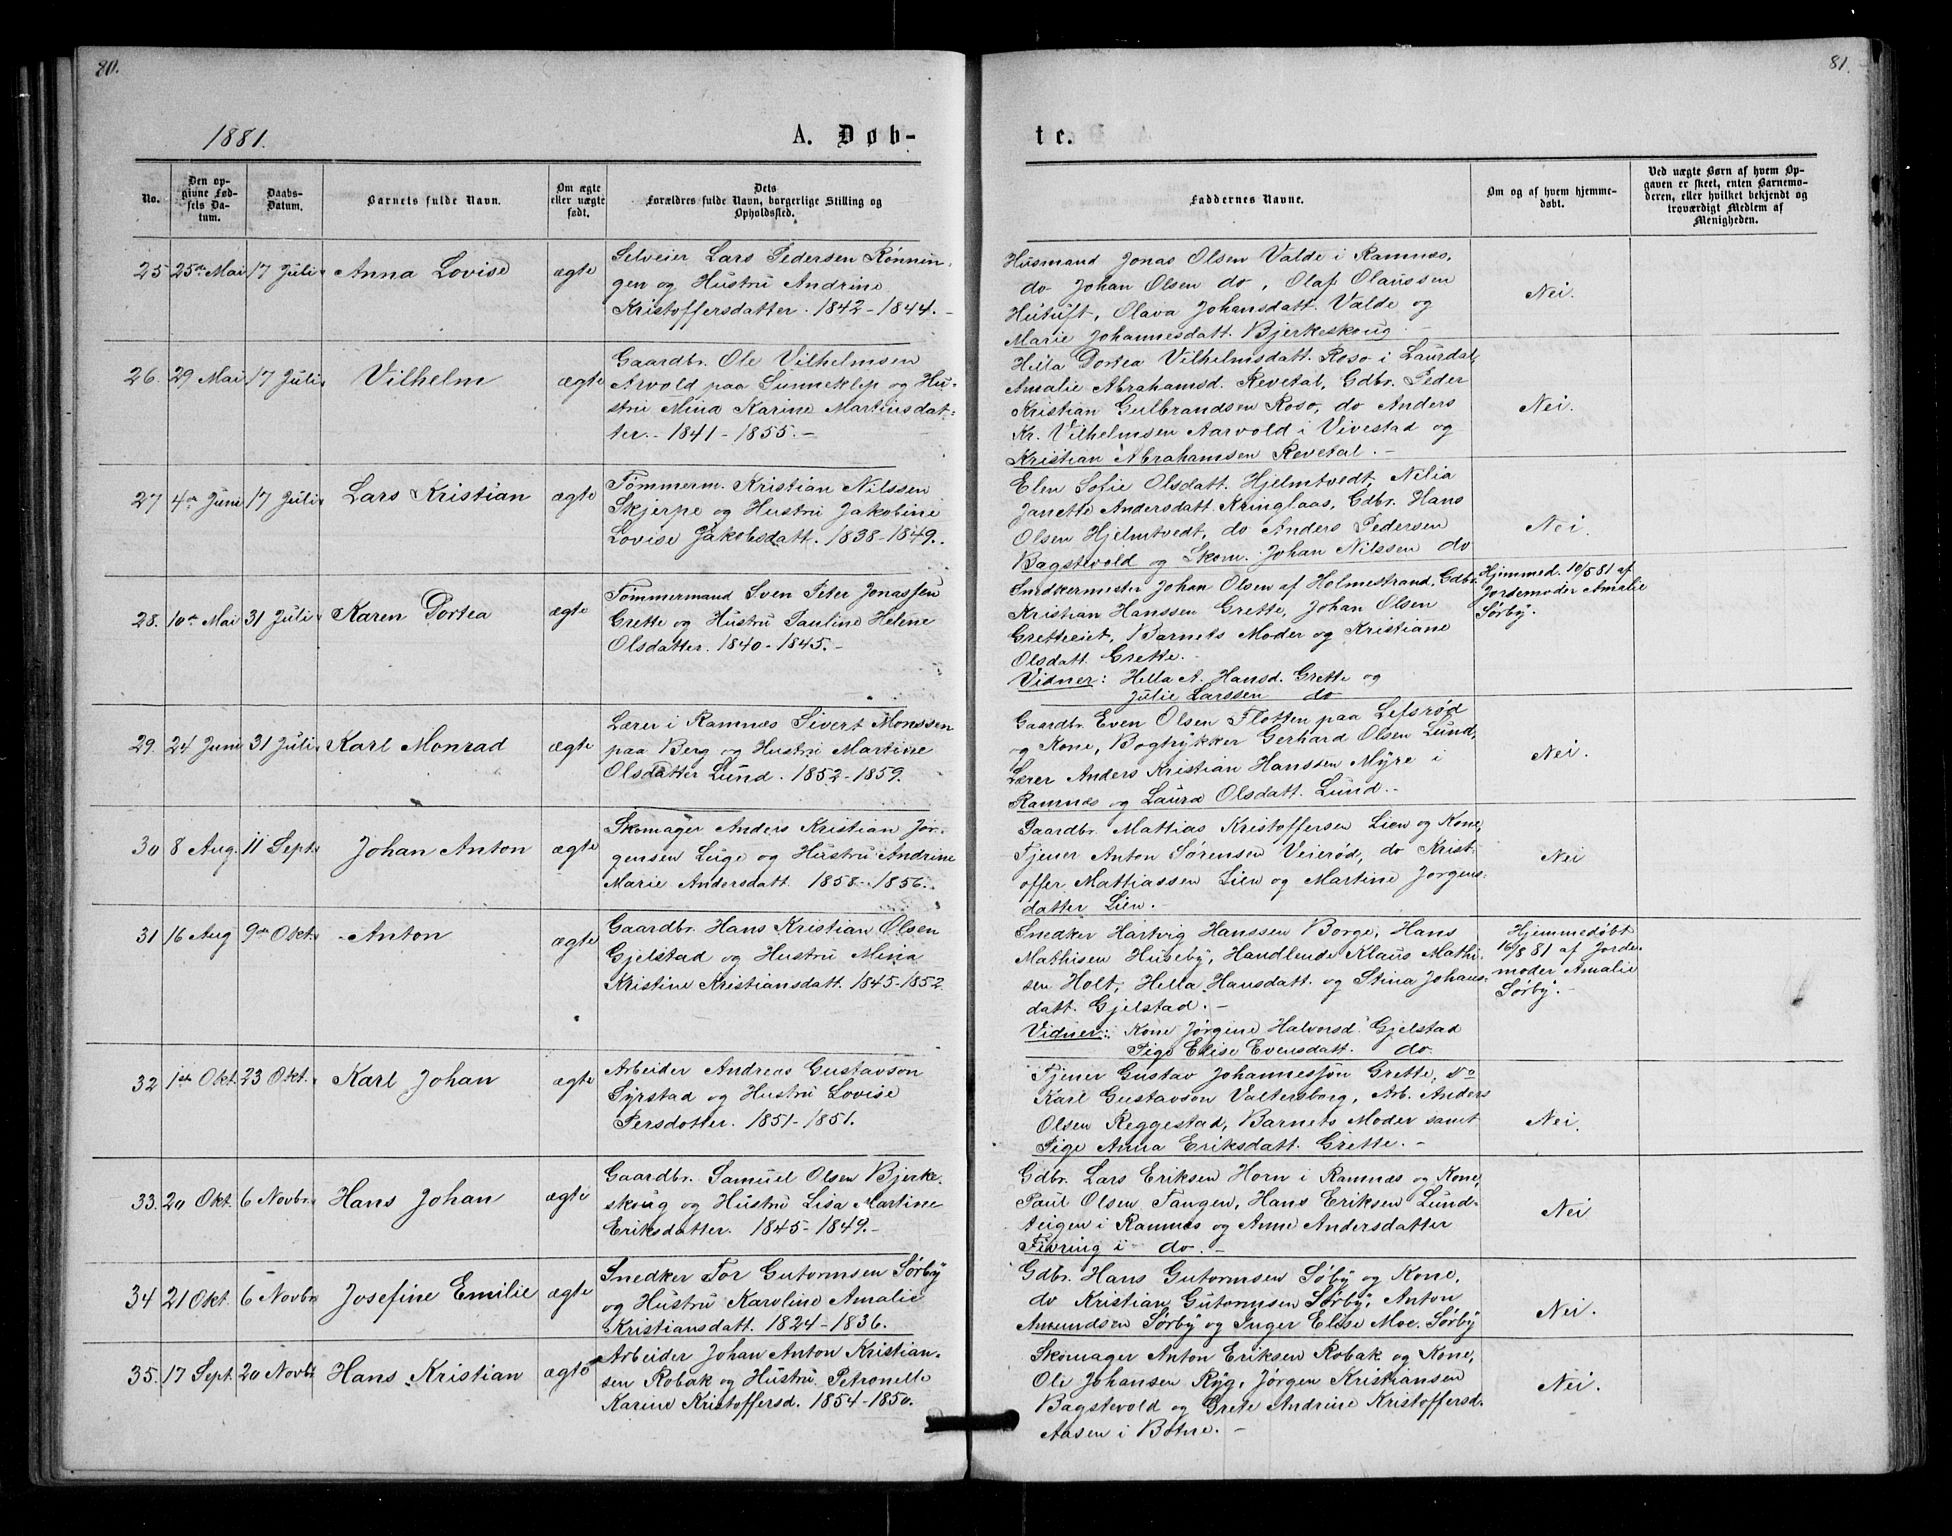 80.
1881.
A. Døb-
No.
Den op-
givne Fød-
sels Da-
tum.
Daabs-
Datum.
Barnets fulde Navn.
Om ægte
eller uægte
født.
Dets
Forældres fulde Navn, borgerlige Stilling og
Opholdssted.
25 25de Mai 17 Juli Anna Lovise ægte
Selveier Lars Pedersen Rønnin-
gen og Hustru Andrine
Kristoffersdatter. 1842-1844.-
26. 29 Mai 17 Juli Vilhelm ægte
Gaardbr. Ole Vilhelmsen
Arvold paa Sunneklep og Hu-
stru Mina Karine Martinsdat-
ter.- 1841-1855.-
27 4de Juni 17 Juli Lars Kristian ægte
Tømmerm. Kristian Nilssen
Skjerpe og Hustru Jakobine
Lovise Jakobsdatt. 1838-1849.
28. 10de Mai 31 Juli Karen Dortea ægte
Tømmermand Sven Peter Jonassen
Grette og Hustru Pauline Helene
Olsdatter. 1840-1845.-
29. 24 Juni 31 Juli Karl Monrad ægte
Lærer i Ramnæs Sivert Monssen
paa Berg og Hustru Martine
Olsdatter Lund. 1852-1859.
30 8 Aug. 11 Sept. Johan Anton ægte
Skomager Anders Kristian Jør-
gensen Luge og Hustru Andrine
Marie Andersdatt. 1858-1856.
31 16 Aug 9de Okt. Anton ægte
Gaardbr. Hans Kristian Olsen
Gjelstad og Hustru Mina
Kristine Kristiansdatt. 1845-1852
32 1ste Okt. 23 Okt. Karl Johan ægte
Arbeider Andreas Gustavson
Syrstad og Hustru Lovise
Persdotter. 1851-1851.
33. 20 Okt. 6 Novbr. Hans Johan ægte
Gaardbr. Samuel Olsen Bjerke-
skoug og Hustru Lisa Martine
Eriksdatter. 1845-1849.-
34 21 Okt. 6 Novbr Josefine Emilie ægte
Snedker Tor Gutormsen Sørby
og Hustru Karoline Amalie
Kristiansdatt. 1824-1836.
35. 17 Sept. 20 Novbr Hans Kristian ægte
Arbeider Johan Anton Kristian-
sen Robak og Hustru Petronelle
Karine Kristoffersd. 1854-1850.
81.
te.
Faddernes Navne.
Om og af hvem hjemme-
døbt.
Ved uægte Børn af hvem Op-
gaven er skeet, enten Barnemo-
deren, eller hvilket bekjendt og
troværdigt Medlem af
Menigheden.
Husmand Jonas Olsen Valde i Ramnæs,
do Johan Olsen do, Olaf Olaussen
Hutuft, Olava Johansdatt. Valde og
Marie Johannesdatt. Bjerkeskoug.-
Nei.
Hella Dortea Vilhelmsdatt. Roso i Laurdal,
Amalie Abrahamsd. Revetal, Gdbr. Peder
Kristian Gulbrandsen Roso, do Anders
Kr. Vilhelmsen Aarvold i Vivestad og
Kristian Abrahamsen Revetal.-
Nei.
Elen Sofie Olsdatt. Hjelmtvedt, Nelia
Janette Andersdatt. Kringlaas, Gdbr. Hans
Olsen Hjelmtvedt, do Anders Pedersen
Bagstevold og Skom. Johan Nilssen do
Nei.
Snedkermester Johan Olsen af Holmestrand, Gdbr.
Kristian Hanssen Grette, Johan Olsen
Gretteeiet, Barnets Moder og Kristiane
Olsdatt. Grette.-
Vidner: Hella A. Hansd. Grette og
Julie Larssen do
Hjemmed. 10/5 81 af
Jordemoder Amalie
Sørby.
Gaardbr. Even Olsen Flotten paa Lefsrød
og Kone, Bogtrykker Gerhard Olsen Lund,
Lærer Anders Kristian Hanssen Myre i
Ramnæs og Laura Olsdatt. Lund.-
Nei.
Gaardbr. Mattias Kristoffersen Lien og Kone,
Tjener Anton Sørensen Veierød, do Krist-
offer Mattiassen Lien og Martine Jørgens-
datter Lien.-
Nei
Snedker Hartvig Hanssen Borge, Hans
Mathisen Huseby, Handlende Klaus Mathi-
sen Holt, Hella Hansdatt. og Stina Johans-
datt. Gjelstad.-
Vidner: Kone Jørgine Halvorsd. Gjelstad
Pige Elise Evensdatt. do
Hjemmedøbt
16/8 81 af Jorde-
moder Amalie
Sørby.-
Tjener Gustav Johannesson Grette, do
Karl Gustavson Valtersborg, Arb. Anders
Olsen Reggestad, Barnets Moder samt
Pige Anna Eriksdatt. Grette.-
Nei.
Gdbr. Lars Eriksen Horn i Ramnæs og Kone,
Paul Olsen Tangen, Hans Eriksen Lund-
teigen i Ramnæs og Anne Andersdatter
Fivring i do.-
Nei
Gdbr. Hans Gutormsen Søby og Kone,
do Kristian Gutormsen Sørby, Anton
Amundsen Sørby og Inger Elise Moe. Sørby
Nei.
Skomager Anton Eriksen Robak og Kone,
Ole Johansen Ryg, Jørgen Kristiansen
Bagstevold og Grete Andrine Kristoffersd.
Aasen i Botne.-
Nei.